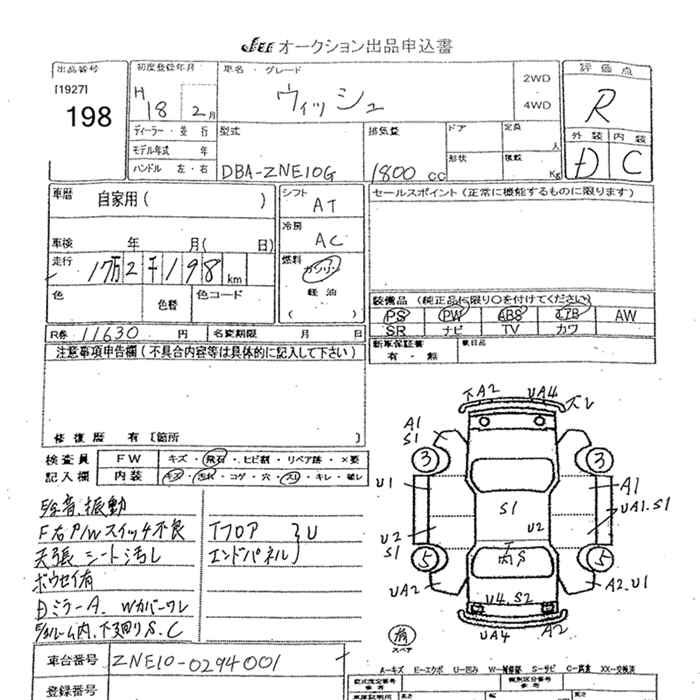 JEE オークション出品申込書
出品番号
[1927]
198
初度登録年月
H 18 2月
車名・グレード
ウィッシュ
2WD
4WD
評価点
R
外装 内装
D C
ディーラー・並行
モデル年式 年
ハンドル 左・右
型式
DBA-ZNE10G
排気量
1800 CC
ドア
定員 人
形状
積載 Kg
車歴 自家用( )
車検 年 月( 日)
走行 17万2千198 km
色
色替
色コード
シフト
AT
冷房
AC
燃料
ガソリン
軽油
( )
セールスポイント(正常に機能するものに限ります)
装備品(純正品に限り○を付けてください)
PS PW ABS エアB AW
SR ナビ TV カワ
新車保証書
有・無
R券 11630 円
名変期限 月 日
注意事項申告欄(不具合内容等は具体的に記入して下さい)
修復歴 有 [箇所
検査員
記入欄
FW キズ・飛石・ヒビ割・リペア跡・×要
内装 キズ・汚れ・コゲ・穴・スリ・キレ・破レ
異音.振動
F右P/Wスイッチ不良
天張シート汚し
ボウセイ有
DミラーA. Wカバーワレ
ルーム内.下廻りS.C
Tフロア
エンドパネル
}U
下A2 UA4 ズレ
A1
S1
3 3
U1 A1
S1 UA1.S1
U2
S1
U2
5 5
内S
UA2 A2.U1
U4.S2
UA4 A2
スペア
車台番号 ZNE10-0294001
登録番号
A-キズ E-エクボ U-凹み W-補修跡 S-サビ C-腐食 XX-交換済
型式指定番号
参考
類別区分番号
参考
長さ